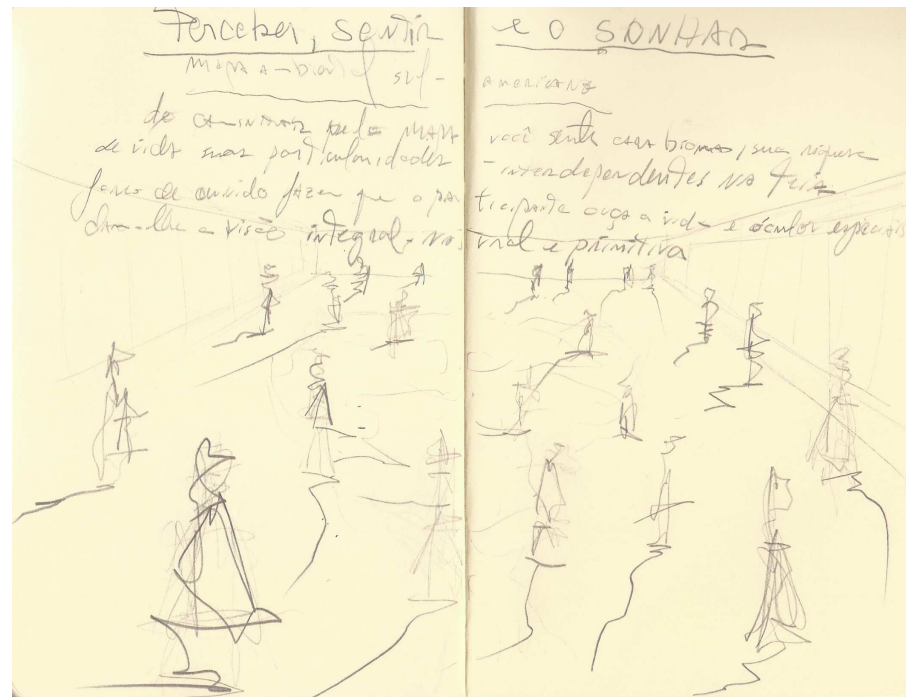 Perceber, SENTIR e O SONHAR
MAPA AMBIENTAL SUL-AMERICANO
do CAMINHAR pelo MAPA você sente cada bioma, sua riqueza
de vida suas particularidades interdependentes NA teia
fones de ouvido fazem que o participante ouça a vida e óculos especiais
dam-lhe a visão integral
e primitiva